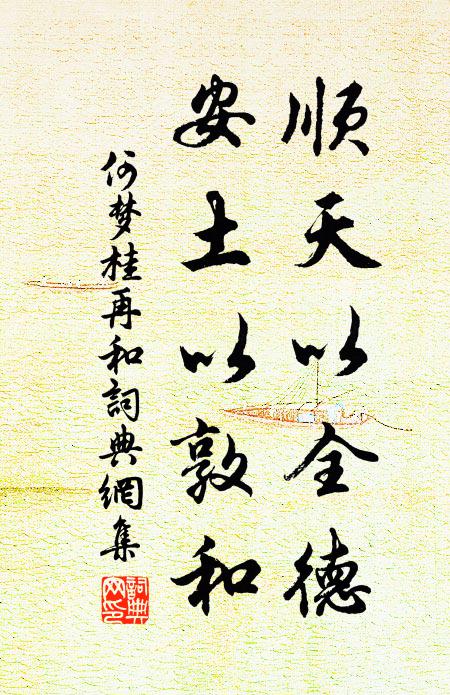 順天以全德
安土以敦和
何梦桂再和詞典網集
詞典
网印